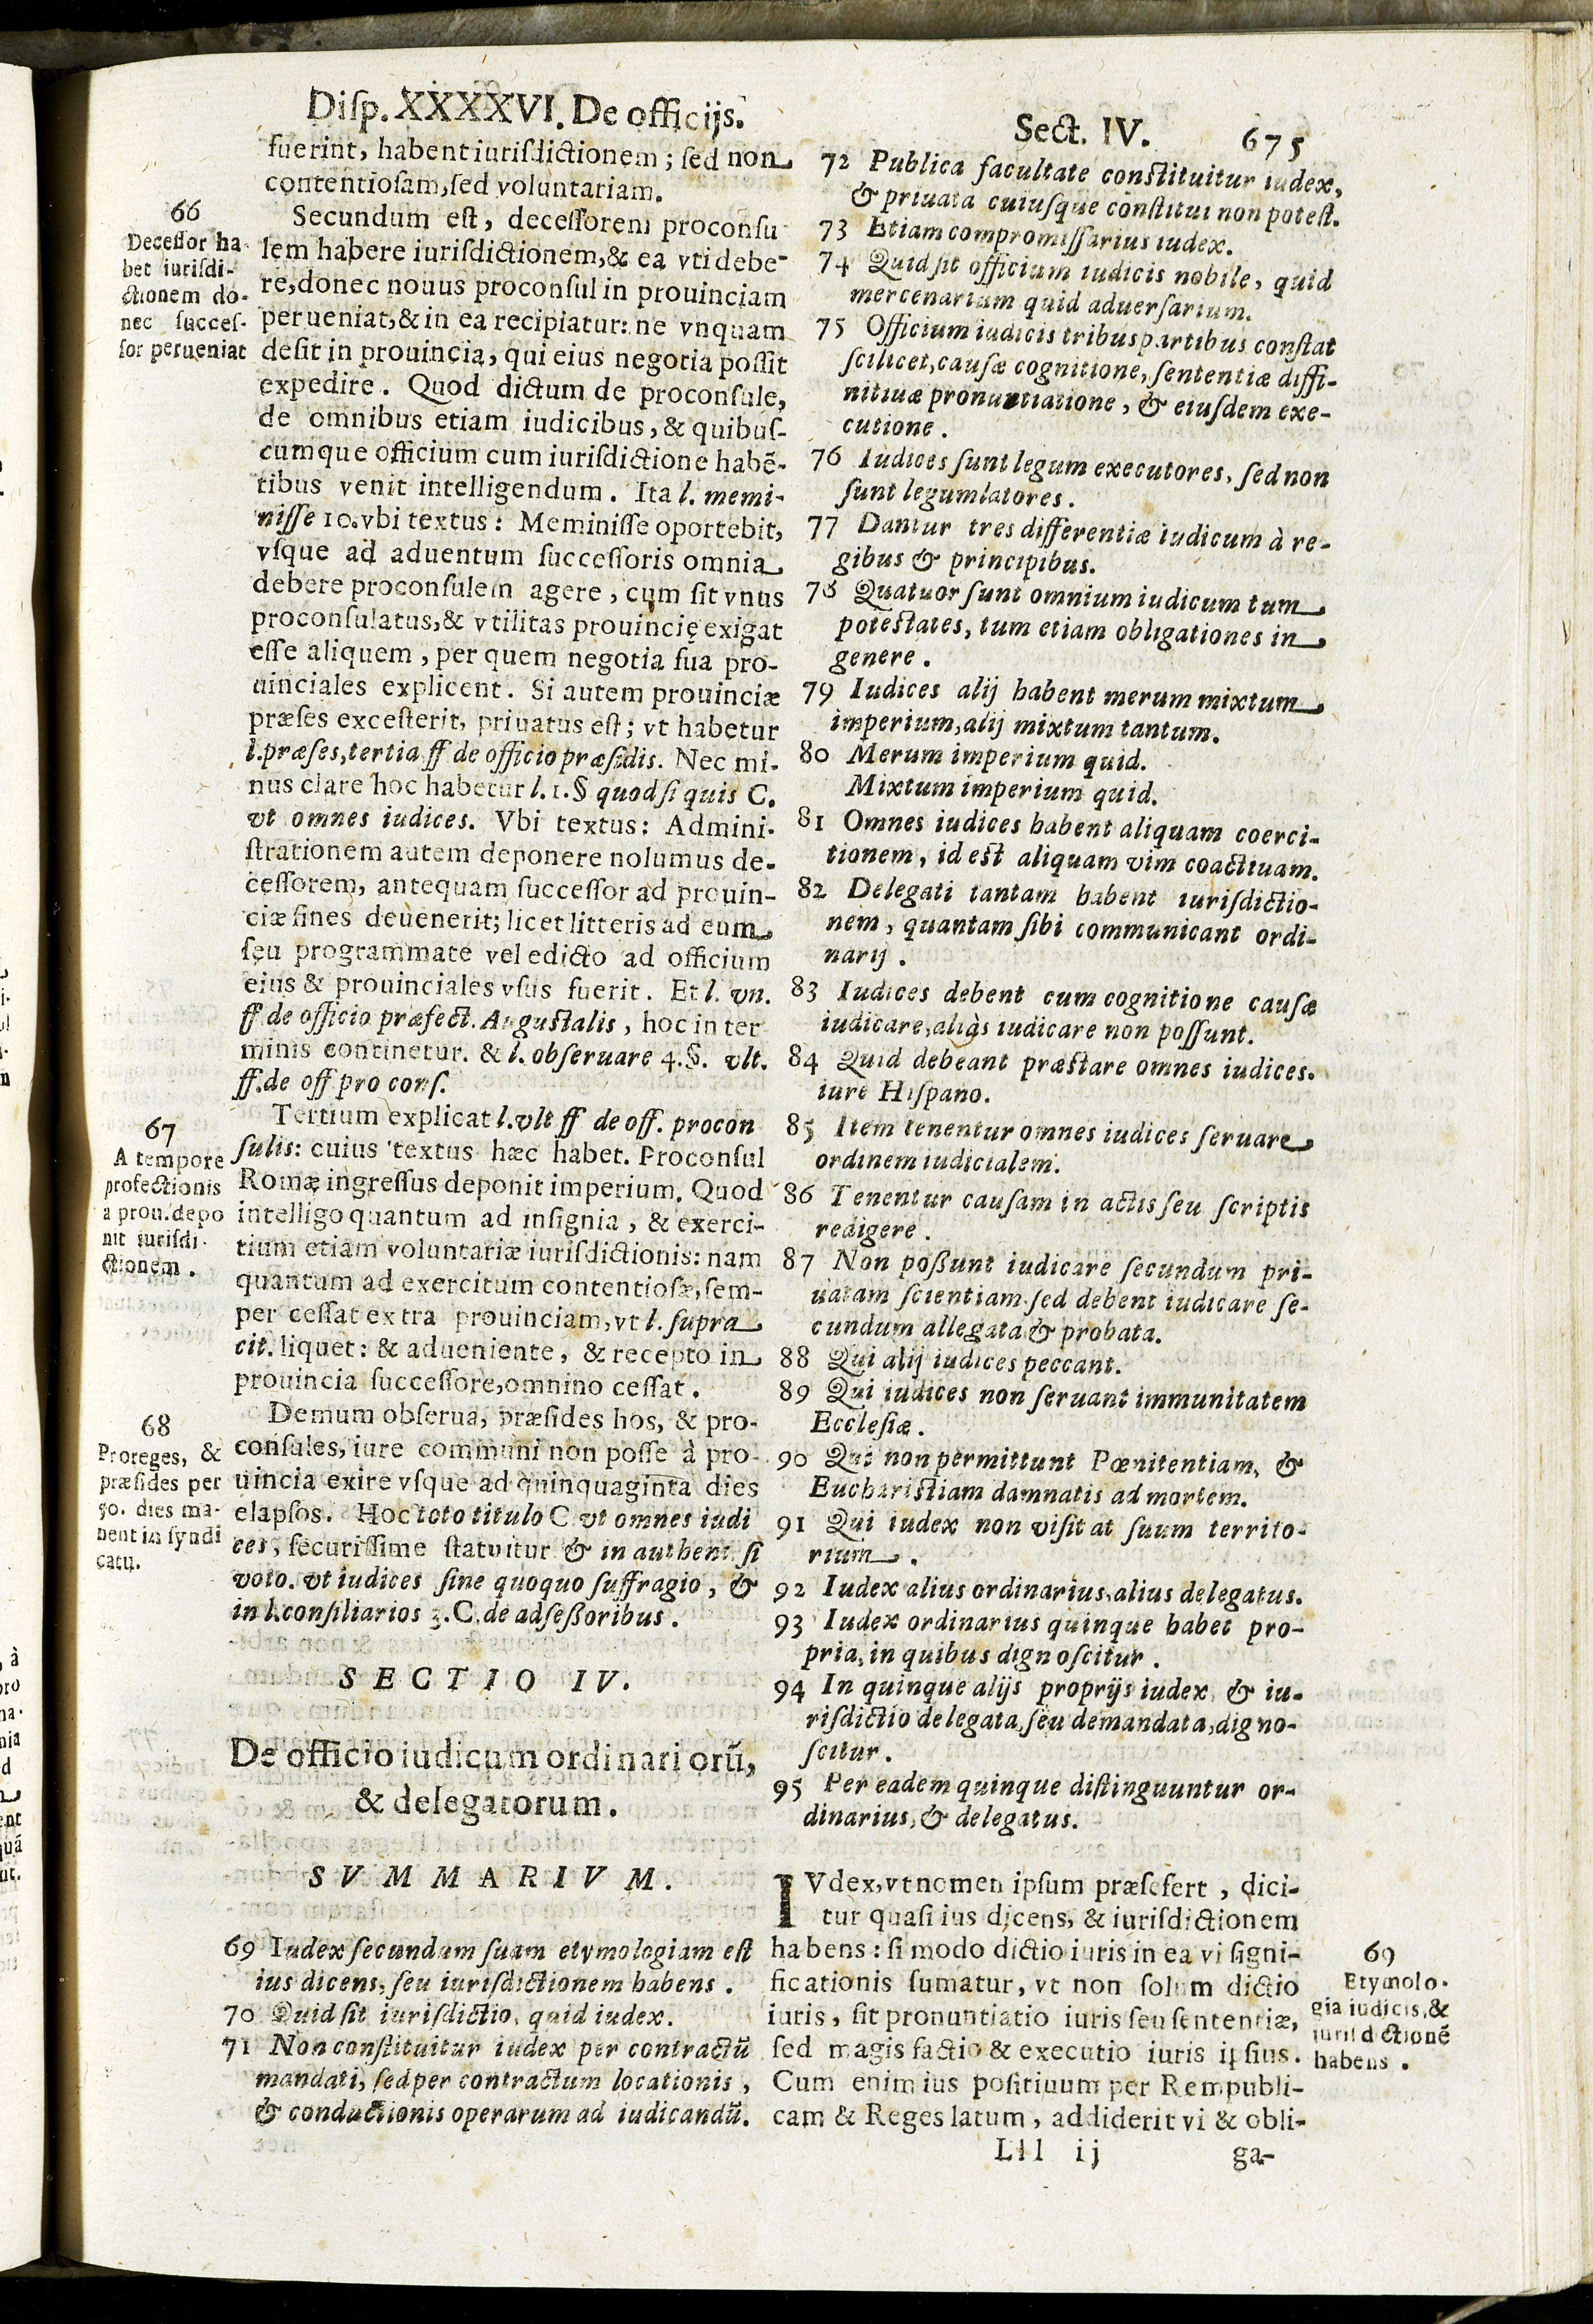 Diſp. XXXXVI. De officijs.
Sect. IV. 675
fuerint, habent iuriſdictionem; ſed non
contentioſam, ſed voluntariam.
66
Deceſſor ha-
bet iuriſdi-
ctionem do-
nec ſucceſ-
ſor perueniat
Secundum eſt, deceſſorem proconſu
lem habere iuriſdictionem, & ea vti debe-
re, donec nouus proconſul in prouinciam
perueniat, & in ea recipiatur: ne vnquam
deſit in prouincia, qui eius negotia poſſit
expedire. Quod dictum de proconſule,
de omnibus etiam iudicibus, & quibuſ-
cumque officium cum iuriſdictione habē-
tibus venit intelligendum. Ita l. memi-
niſſe 10. vbi textus: Meminiſſe oportebit,
vſque ad aduentum ſucceſſoris omnia
debere proconſulem agere, cum ſit vnus
proconſulatus, & vtilitas prouincię exigat
eſſe aliquem, per quem negotia ſua pro-
uinciales explicent. Si autem prouinciæ
præſes exceſterit, priuatus eſt; vt habetur
l. præſes, tertia ff de officio præſidis. Nec mi-
nus clare hoc habetur l. 1. § quod ſi quis C.
vt omnes iudices. Vbi textus: Admini-
ſtrationem autem deponere nolumus de-
ceſſorem, antequam ſucceſſor ad prouin-
ciæ fines deuenerit; licet litteris ad eum
ſeu programmate vel edicto ad officium
eius & prouinciales vſus fuerit. Et l. vn.
ff de officio præfect. Auguſtalis, hoc in ter
minis continetur. & l. obſeruare 4. §. vlt.
ff. de off pro conſ.
67
A tempore
profectionis
a prou. depo
nit iuriſdi-
ctionem.
Tertium explicat l. vlt ff de off. procon
ſulis: cuius textus hæc habet. Proconſul
Romæ ingreſſus deponit imperium. Quod
intelligo quantum ad inſignia, & exerci-
tium etiam voluntariæ iuriſdictionis: nam
quantum ad exercitum contentioſæ, ſem-
per ceſſat extra prouinciam, vt l. ſupra
cit. liquet: & adueniente, & recepto in
prouincia ſucceſſore, omnino ceſſat.
68
Proreges, &
præſides per
50. dies ma-
nent in ſyndi
catu.
Demum obſerua, præſides hos, & pro-
conſules, iure communi non poſſe à pro-
uincia exire vſque ad quinquaginta dies
elapſos. Hoc toto titulo C vt omnes iudi
ces, ſecuriſſime ſtatuitur & in authent. ſi
volo. vt iudices ſine quoquo ſuffragio, &
in l. conſiliarios 3. C. de adſeßoribus.
SECTIO IV.
De officio iudicum ordinariorū,
& delegatorum.
SVMMARIVM.
69 Iudex ſecundum ſuam etymologiam eſt
ius dicens, ſeu iuriſdictionem habens.
70 Quid ſit iuriſdictio, quid iudex.
71 Non conſtituitur iudex per contractū
mandati, ſed per contractum locationis,
& conductionis operarum ad iudicandū.
72 Publica facultate conſtituitur iudex,
& priuata cuiuſque conſtitui non poteſt.
73 Etiam compromiſſarius iudex.
74 Quid ſit officium iudicis nobile, quid
mercenarium quid aduerſarium.
75 Officium iudicis tribus partibus conſtat
ſcilicet, cauſæ cognitione, ſententiæ diffi-
nitiuæ pronuntiatione, & eiuſdem exe-
cutione.
76 Iudices ſunt legum executores, ſed non
ſunt legumlatores.
77 Dantur tres differentiæ iudicum à re-
gibus & principibus.
78 Quatuor ſunt omnium iudicum tum
poteſtates, tum etiam obligationes in
genere.
79 Iudices alij habent merum mixtum
imperium, alij mixtum tantum.
80 Merum imperium quid.
Mixtum imperium quid.
81 Omnes iudices habent aliquam coerci-
tionem, id eſt aliquam vim coactiuam.
82 Delegati tantam habent iuriſdictio-
nem, quantam ſibi communicant ordi-
narij.
83 Iudices debent cum cognitione cauſæ
iudicare, aliàs iudicare non poſſunt.
84 Quid debeant præſtare omnes iudices.
iure Hiſpano.
85 Item tenentur omnes iudices ſeruare
ordinem iudicialem.
86 Tenentur cauſam in actis ſeu ſcriptis
redigere.
87 Non poßunt iudicare ſecundum pri-
uatam ſcientiam ſed debent iudicare ſe-
cundum allegata & probata.
88 Qui alij iudices peccant.
89 Qui iudices non ſeruant immunitatem
Eccleſiæ.
90 Qui non permittunt Pœnitentiam, &
Euchariſtiam damnatis ad mortem.
91 Qui iudex non viſitat ſuum territo-
rium.
92 Iudex alius ordinarius, alius delegatus.
93 Iudex ordinarius quinque habet pro-
pria, in quibus dignoſcitur.
94 In quinque alijs proprijs iudex, & iu-
riſdictio delegata, ſeu demandata, digno-
ſcitur.
95 Per eadem quinque diſtinguuntur or-
dinarius, & delegatus.
IVdex, vt nomen ipſum præſefert, dici-
tur quaſi ius dicens, & iuriſdictionem
habens: ſi modo dictio iuris in ea vi ſigni-
ficationis ſumatur, vt non ſolum dictio
iuris, ſit pronuntiatio iuris ſeu ſententiæ,
ſed magis factio & executio iuris ipſius.
Cum enim ius poſitiuum per Rempubli-
cam & Reges latum, addiderit vi & obli-
69
Etymolo-
gia iudicis, &
iuriſdictionē
habens.
Lll ij ga-